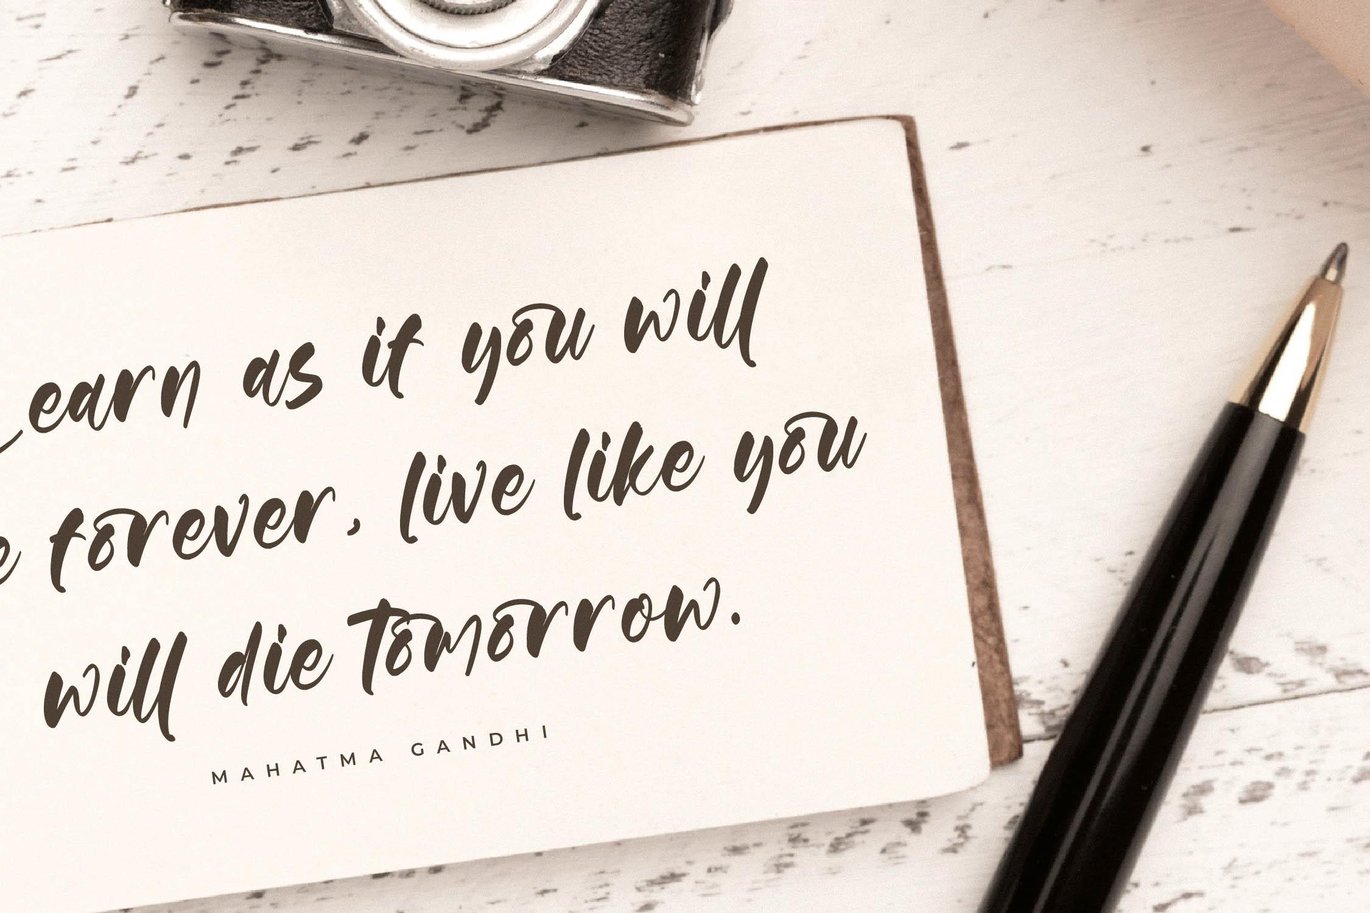 Learn as if you will
e forever, live like you
will die Tomorrow.
MAHATMA GANDHI